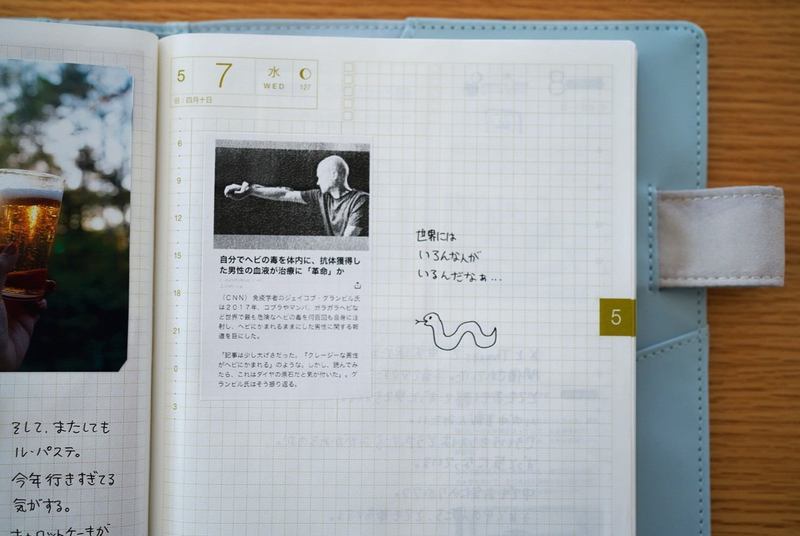 そして、またしても
ル・パステ。
今年行きすぎてる
気がする。
キャロットケーキが
5 7 水 WED 127
四月十日
6
9
12
15
18
21
3
自分でヘビの毒を体内に、抗体獲得し
た男性の血液が治療に「革命」か
(CNN) 免疫学者のジェイコブ・グランビル氏
は2017年、コブラやマンバ、ガラガラヘビな
ど世界で最も危険なヘビの毒を何百回も自身に注
射し、ヘビにかまれるままにした男性に関する報
道を目にした。
「記事は少し大げさだった。『クレージーな男性
がヘビにかまれる』のような。しかし、読んでみ
たら、これはダイヤの原石だと気が付いた」。グ
ランビル氏はそう振り返る。
世界には
いろんな人が
いるんだなぁ...
5